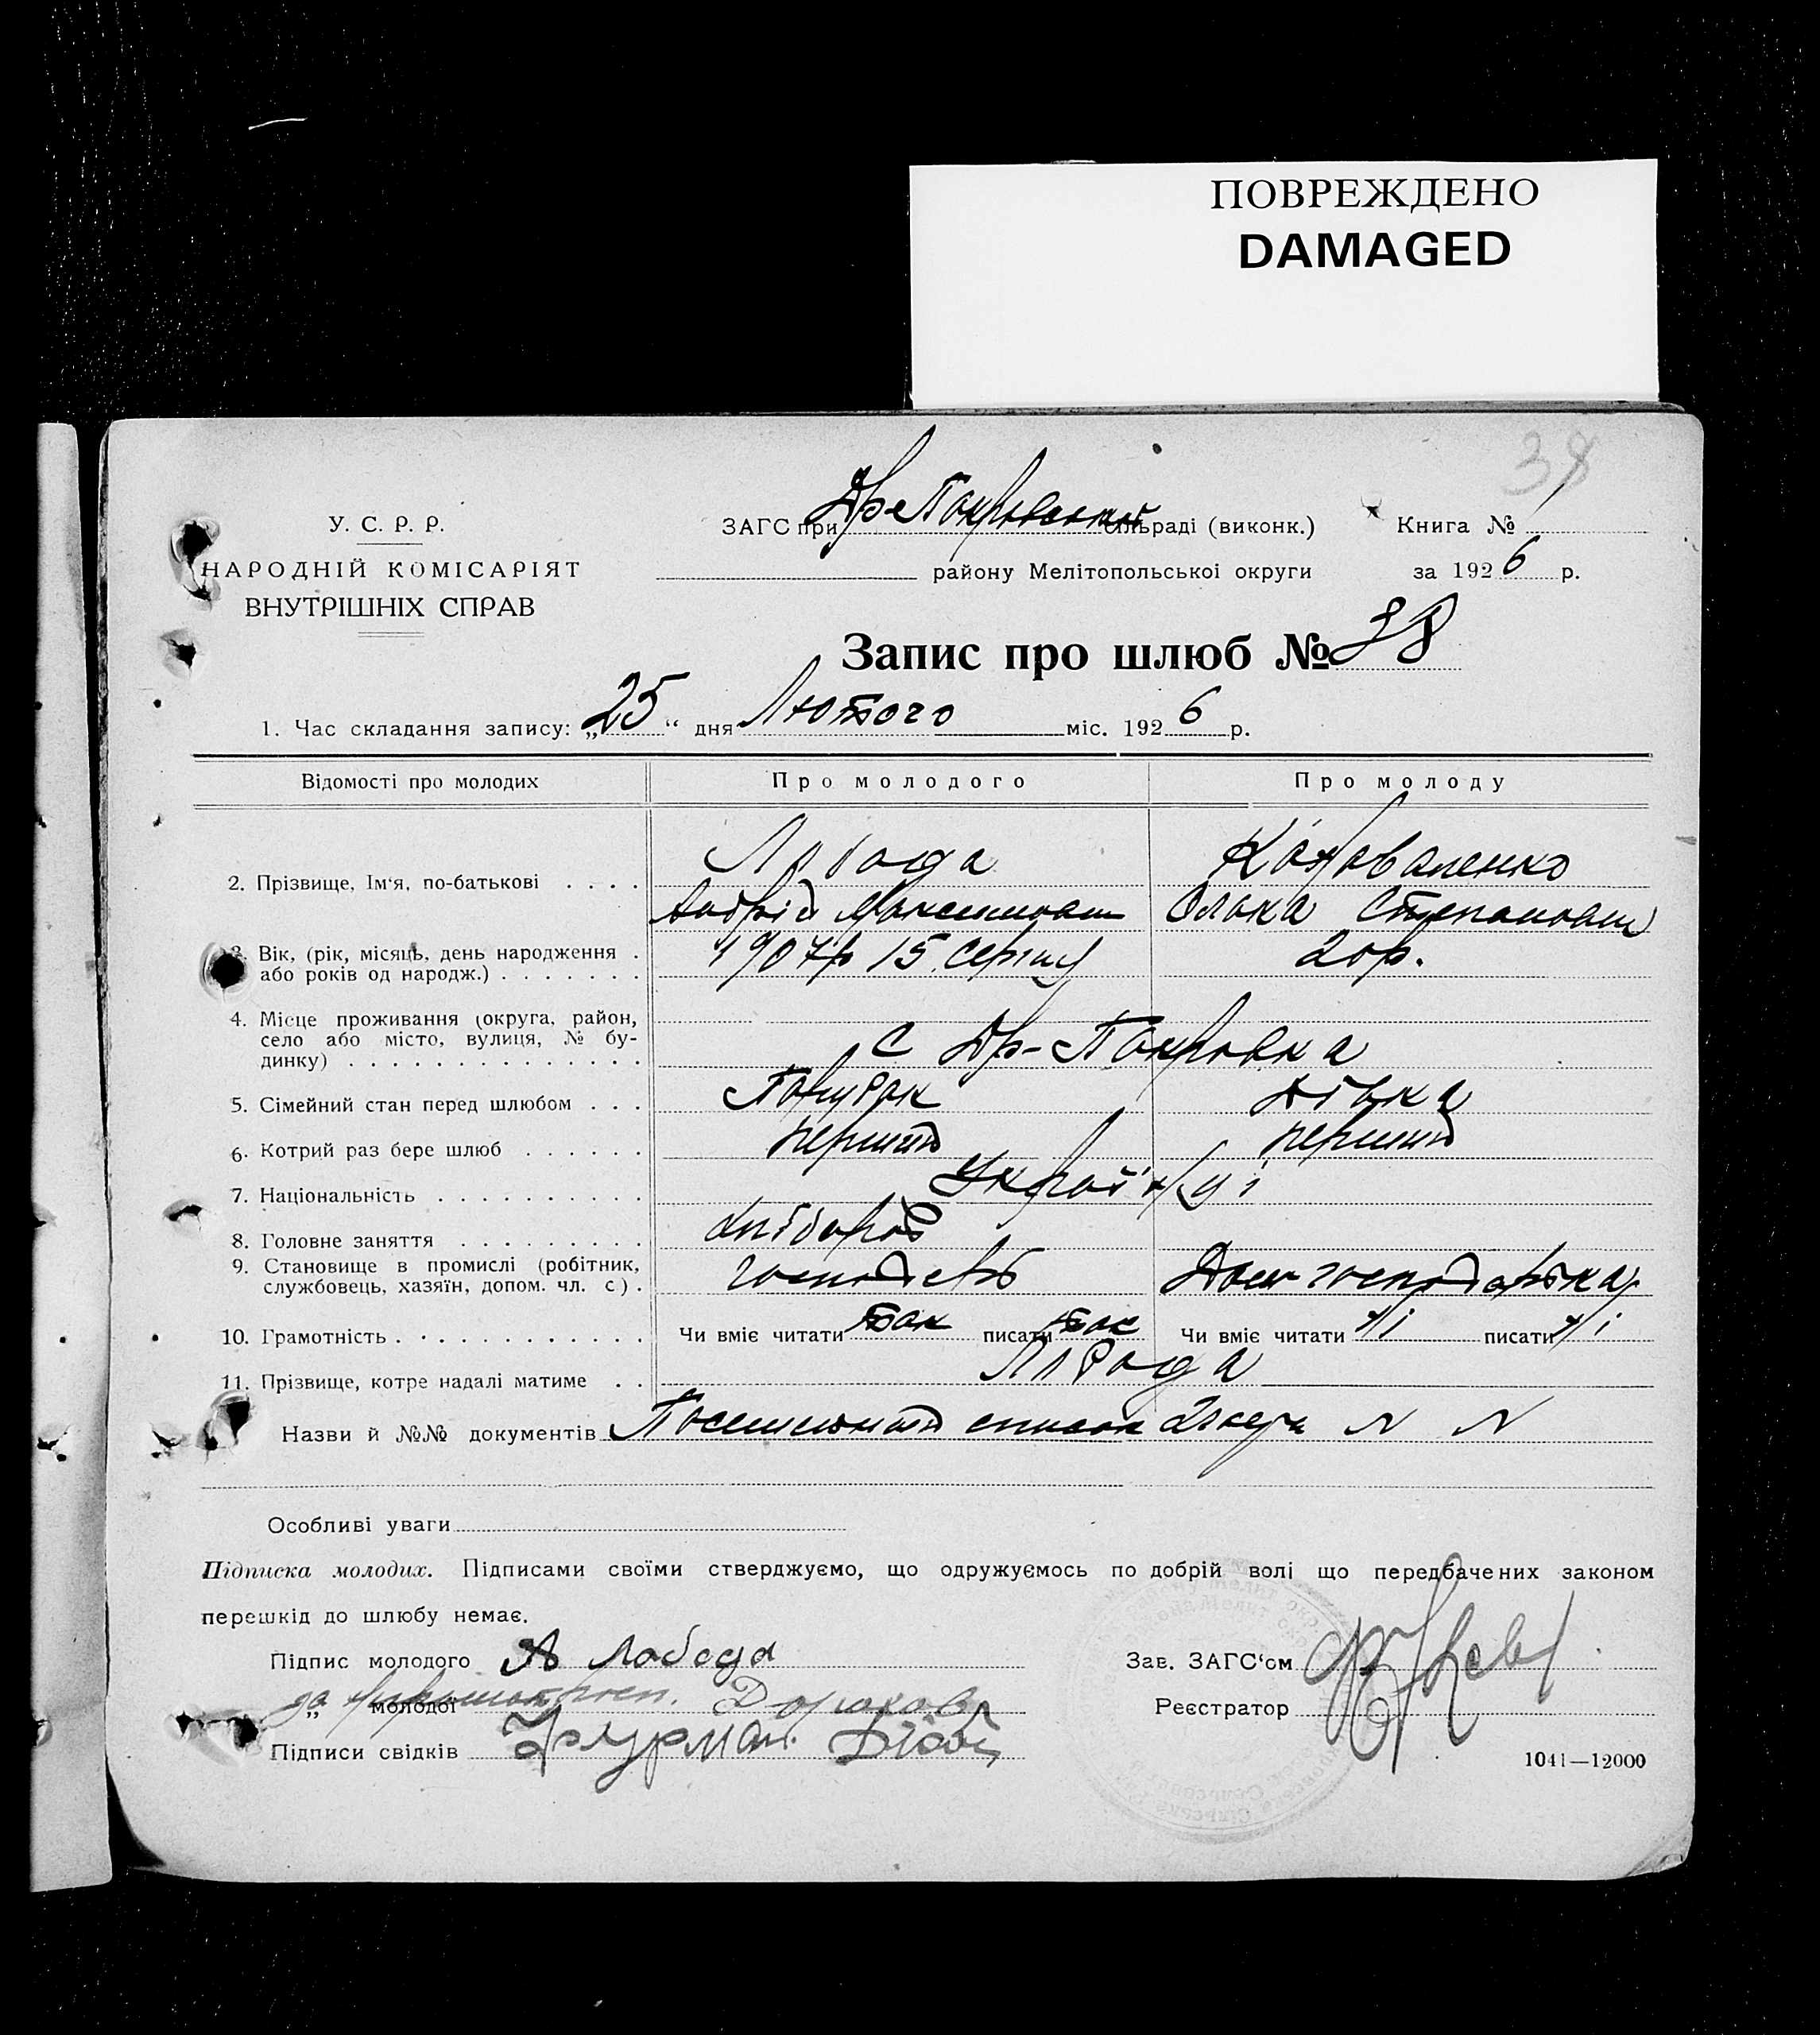 ПОВРЕЖДЕНО
DAMAGED
38
У. С. Р. Р.
НАРОДНІЙ КОМІСАРІЯТ
ВНУТРІШНІХ СПРАВ
ЗАГС при Др-Покровській сільраді (виконк.)
Книга № 1
району Мелітопольської округи
за 1926 р.
Запис про шлюб № 38
1. Час складання запису: „25“ дня Лютого міс. 1926 р.
Відомості про молодих Про молодого Про молоду
Лобода Коноваленко
2. Прізвище, Ім‘я, по-батькові . . . .
Андрій Максимович Олена Степанович
3. Вік, (рік, місяць, день народження . 1907р 15 серпня 20р.
або років од народж.) . . . . . . .
4. Місце проживання (округа, район,
село або місто, вулиця, № бу- с Др-Покровка
динку) . . . . . . . . . . . . . .
5. Сімейний стан перед шлюбом . . . Парубок Дівка
6. Котрий раз бере шлюб . . . . . . перший перший
7. Національність . . . . . . . . . . Українці
8. Головне заняття . . . . . . . . . хлібороб
9. Становище в промислі (робітник, господарь Дом господарька
службовець, хазяїн, допом. чл. с.) .
10. Грамотність . . . . . . . . . . . Чи вміє читати так писати так Чи вміє читати ні писати ні
11. Прізвище, котре надалі матиме . . Лобода
Назви й №№ документів Посемейний список N N
Особливі уваги
Підписка молодих. Підписами своїми стверджуємо, що одружуємось по добрій волі що передбачених законом
перешкід до шлюбу немає.
Підпис молодого А Лобода
Зав. ЗАГС‘ом
„ молодої
Реєстратор
Підписи свідків Фурман
1041—12000